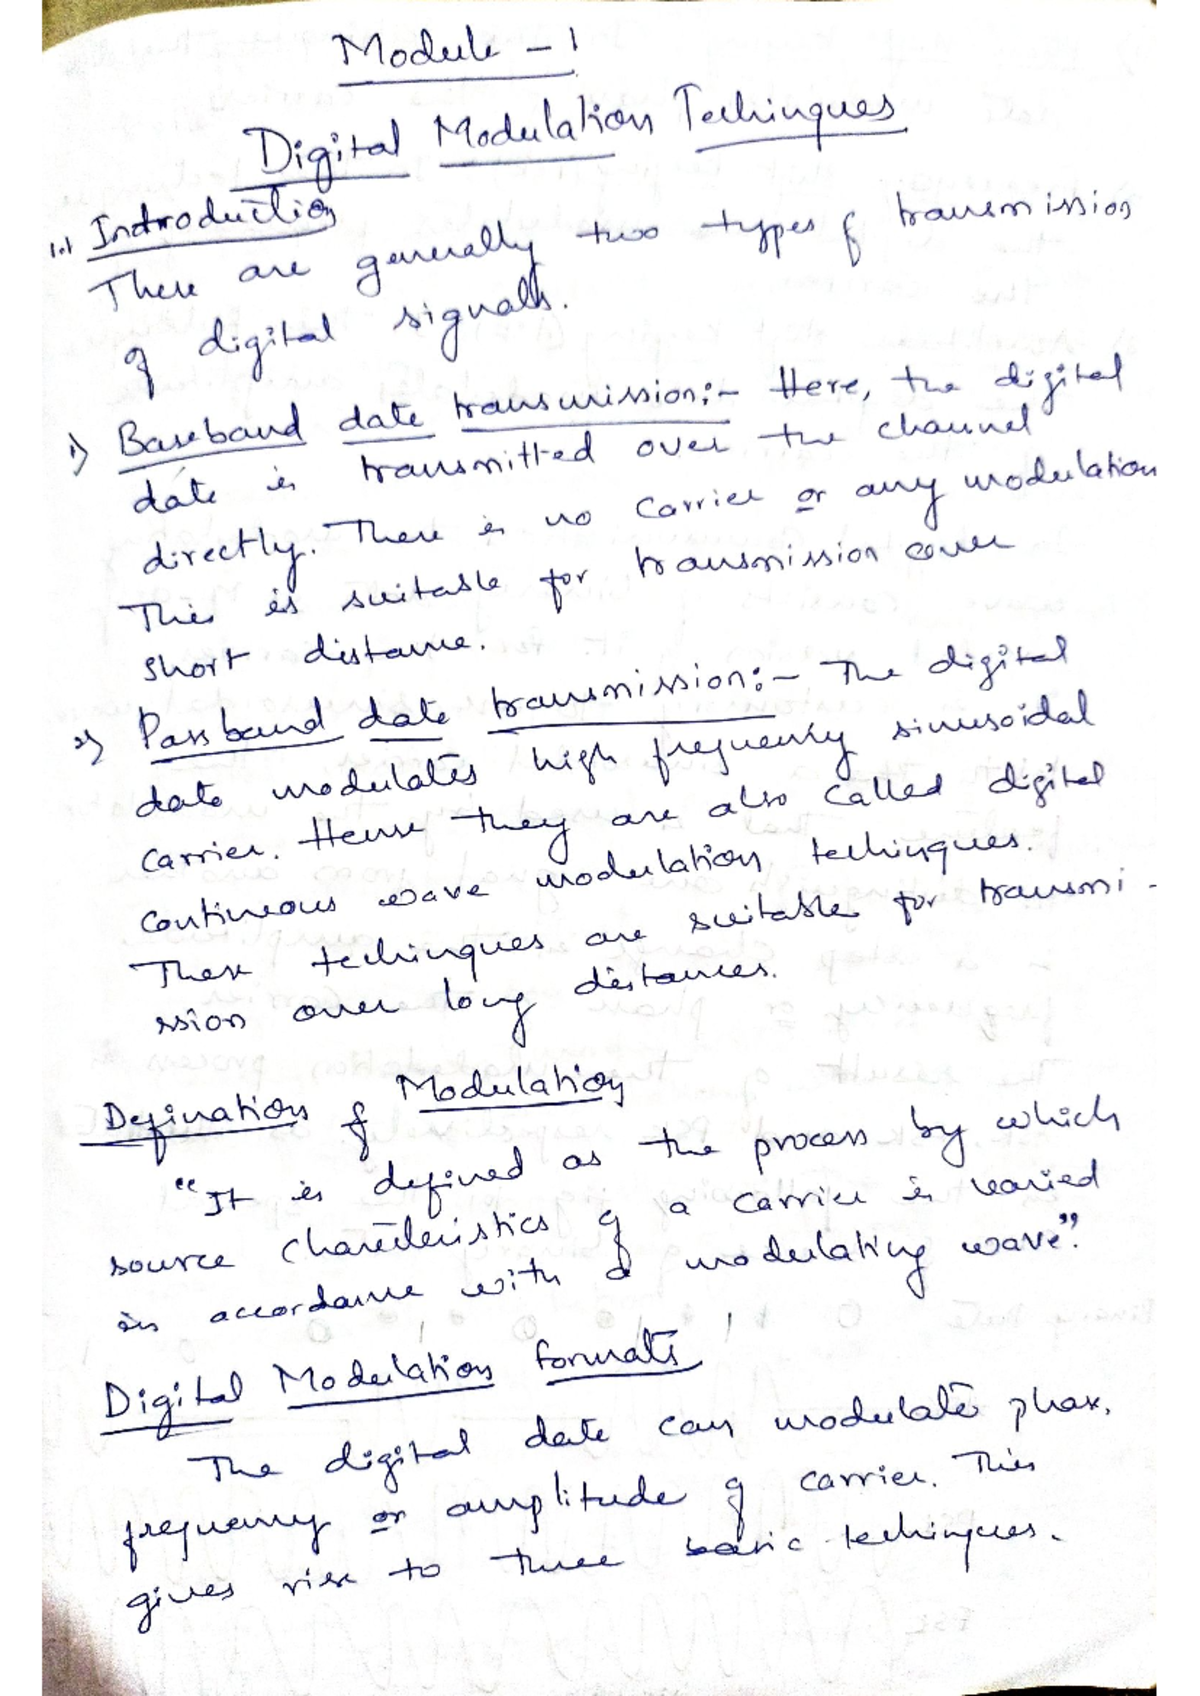 Module - 1
Digital Modulation Techinques
1.1 Introduction
There are generally two types of transmission
of digital signals.
1) Baseband date transmission:- Here, the digital
date is transmitted over the channel
directly. There is no carrier or any modulation
This is suitable for transmission over
short distance.
2) Passband date transmission:- The digital
date modulates high frequency sinusoidal
carrier. Hense they are also called digital
continuous wave modulation techinques.
These techinques are suitable for transmi-
ssion over long distances.
Defination of Modulation
"It is defined as the process by which
source charecteristics of a carrier is varied
in accordance with a modulating wave".
Digital Modulation formats
The digital date can modulate phase,
frequency or amplitude of carrier. This
gives rise to three basic techinques.